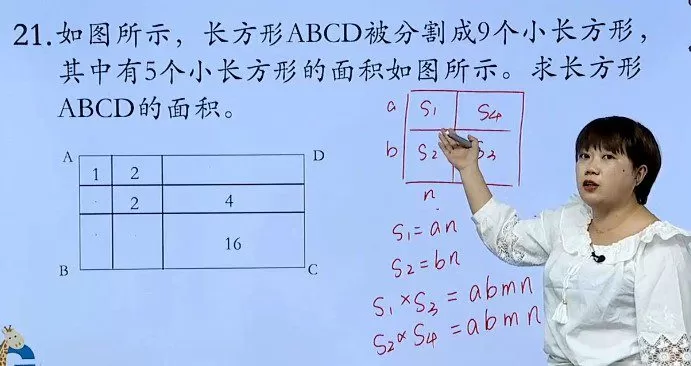 21.如图所示，长方形ABCD被分割成9个小长方形，
其中有5个小长方形的面积如图所示。求长方形
ABCD的面积。
A
D
1 2
2 4
16
B
C
a S₁ S₄
b S₂ S₃
n
S₁=an
S₂=bn
S₁×S₃=abmn
S₂×S₄=abmn